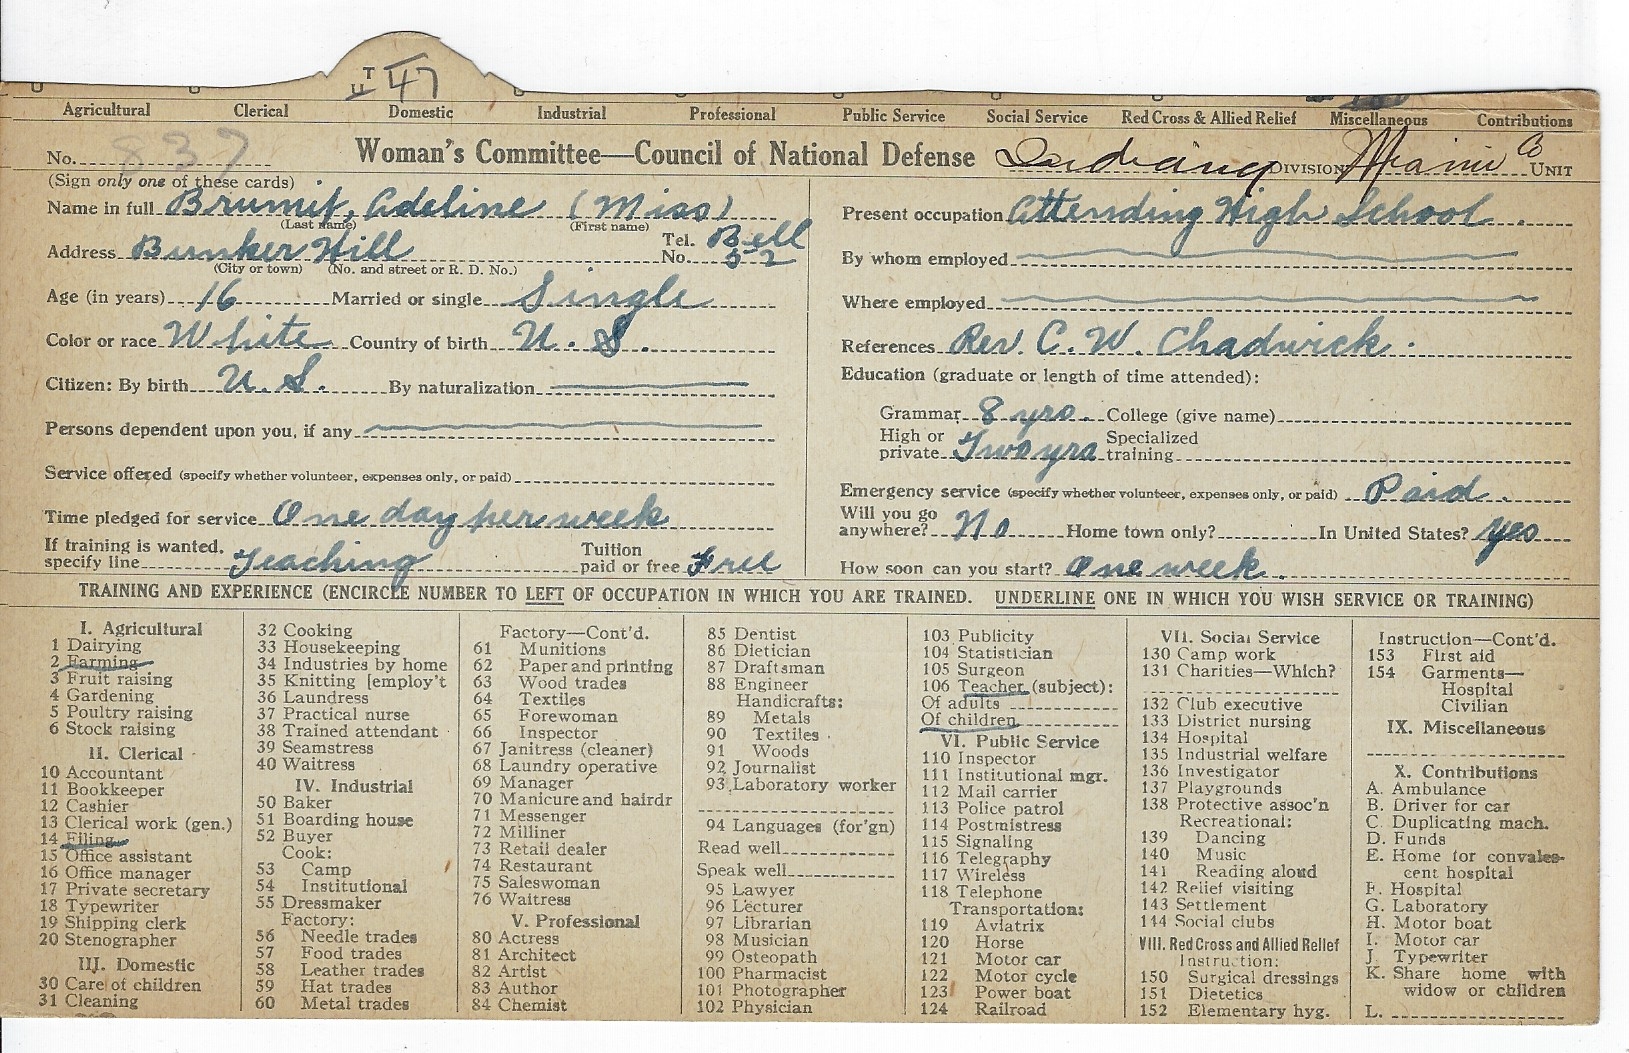 47
Agricultural Clerical Domestic Industrial Professional Public Service Social Service Red Cross & Allied Relief Miscellaneous Contributions
No. 837 Woman's Committee—Council of National Defense Indiana DIVISION Miami Co UNIT
(Sign only one of these cards)
Name in full Brumit, Adeline (Miss)
(Last name) (First name)
Address Bunker Hill Tel. No. Bell 52
(City or town) (No. and street or R. D. No.)
Age (in years) 16 Married or single Single
Color or race White Country of birth U. S.
Citizen: By birth U. S. By naturalization
Persons dependent upon you, if any
Service offered (specify whether volunteer, expenses only, or paid)
Time pledged for service One day per week
If training is wanted, specify line Teaching Tuition paid or free Free
Present occupation Attending High School.
By whom employed
Where employed
References Rev. C. W. Chadwick.
Education (graduate or length of time attended):
Grammar 8 yrs. College (give name)
High or private Two yrs Specialized training
Emergency service (specify whether volunteer, expenses only, or paid) Paid.
Will you go anywhere? No Home town only? In United States? yes
How soon can you start? One week.
TRAINING AND EXPERIENCE (ENCIRCLE NUMBER TO LEFT OF OCCUPATION IN WHICH YOU ARE TRAINED. UNDERLINE ONE IN WHICH YOU WISH SERVICE OR TRAINING)
I. Agricultural
1 Dairying
2 Farming
3 Fruit raising
4 Gardening
5 Poultry raising
6 Stock raising
II. Clerical
10 Accountant
11 Bookkeeper
12 Cashier
13 Clerical work (gen.)
14 Filing
15 Office assistant
16 Office manager
17 Private secretary
18 Typewriter
19 Shipping clerk
20 Stenographer
III. Domestic
30 Care of children
31 Cleaning
32 Cooking
33 Housekeeping
34 Industries by home
35 Knitting [employ't
36 Laundress
37 Practical nurse
38 Trained attendant
39 Seamstress
40 Waitress
IV. Industrial
50 Baker
51 Boarding house
52 Buyer
Cook:
53 Camp
54 Institutional
55 Dressmaker
Factory:
56 Needle trades
57 Food trades
58 Leather trades
59 Hat trades
60 Metal trades
Factory—Cont'd.
61 Munitions
62 Paper and printing
63 Wood trades
64 Textiles
65 Forewoman
66 Inspector
67 Janitress (cleaner)
68 Laundry operative
69 Manager
70 Manicure and hairdr
71 Messenger
72 Milliner
73 Retail dealer
74 Restaurant
75 Saleswoman
76 Waitress
V. Professional
80 Actress
81 Architect
82 Artist
83 Author
84 Chemist
85 Dentist
86 Dietician
87 Draftsman
88 Engineer
Handicrafts:
89 Metals
90 Textiles
91 Woods
92 Journalist
93 Laboratory worker
94 Languages (for'gn)
Read well
Speak well
95 Lawyer
96 Lecturer
97 Librarian
98 Musician
99 Osteopath
100 Pharmacist
101 Photographer
102 Physician
103 Publicity
104 Statistician
105 Surgeon
106 Teacher (subject):
Of adults
Of children
VI. Public Service
110 Inspector
111 Institutional mgr.
112 Mail carrier
113 Police patrol
114 Postmistress
115 Signaling
116 Telegraphy
117 Wireless
118 Telephone
Transportation:
119 Aviatrix
120 Horse
121 Motor car
122 Motor cycle
123 Power boat
124 Railroad
VII. Social Service
130 Camp work
131 Charities—Which?
132 Club executive
133 District nursing
134 Hospital
135 Industrial welfare
136 Investigator
137 Playgrounds
138 Protective assoc'n
Recreational:
139 Dancing
140 Music
141 Reading aloud
142 Relief visiting
143 Settlement
144 Social clubs
VIII. Red Cross and Allied Relief
Instruction:
150 Surgical dressings
151 Dietetics
152 Elementary hyg.
Instruction—Cont'd.
153 First aid
154 Garments—
Hospital
Civilian
IX. Miscellaneous
X. Contributions
A. Ambulance
B. Driver for car
C. Duplicating mach.
D. Funds
E. Home for convales-
cent hospital
F. Hospital
G. Laboratory
H. Motor boat
I. Motor car
J. Typewriter
K. Share home with
widow or children
L.